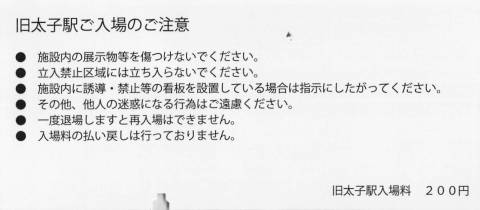 旧太子駅ご入場のご注意
● 施設内の展示物等を傷つけないでください。
● 立入禁止区域には立ち入らないでください。
● 施設内に誘導・禁止等の看板を設置している場合は指示にしたがってください。
● その他、他人の迷惑になる行為はご遠慮ください。
● 一度退場しますと再入場はできません。
● 入場料の払い戻しは行っておりません。
旧太子駅入場料 ２００円